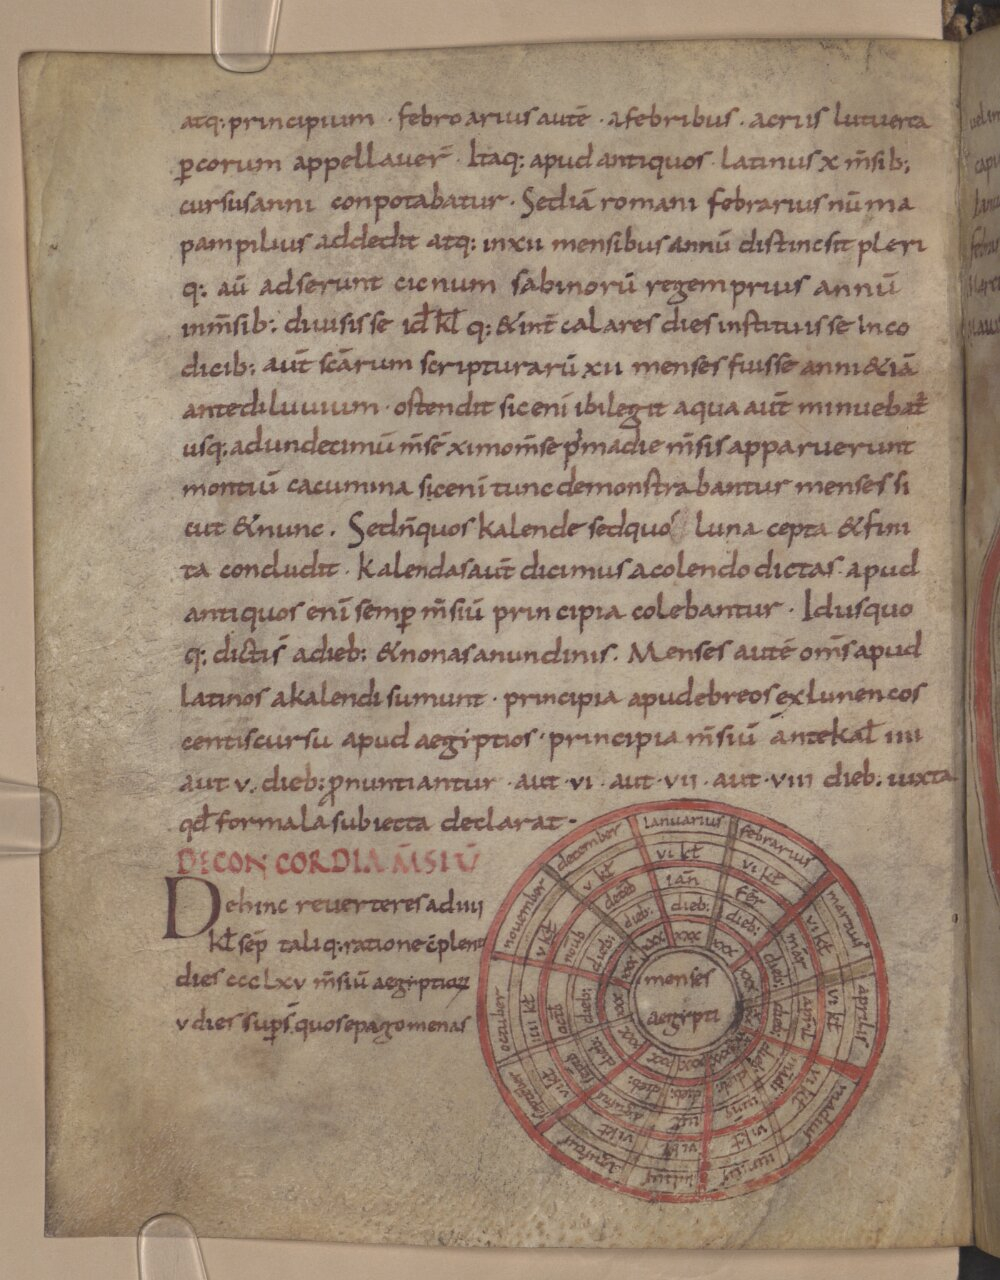 atq: principium · febroarius autē · afebribus · acriis lutuerta
ꝑcorum appellauer̄ · Itaq: apud antiquos · latinus x m̄sib;
cursus anni conpotabatur · Sediā romani febrarius nūma
pampilius addedit atq: in xii mensibus annū distincsit pleri
q: aū adserunt cicnum sabinorū regem prius annū
in m̄sib: diuisisse id k̄l q: & int̄ calares dies instituisse Inco
dicib: aut̄ scārum scripturarū xii menses fuisse anni & iā
antediluuium · ostendit sic enī ibi legit aqua aut̄ minuebat̄
usq: ad undecimū m̄sē xi mo m̄se pͥma die m̄sis apparuerunt
montiū cacumina sic enī tunc demonstrabantur menses si
cut & nunc . Sed n̄ quos kalende sed quos luna cepta & fini
ta concludit · kalendas aut̄ dicimus a colendo dictas · apud
antiquos enī semꝑ m̄siū principia colebantur · Idus quo
q: dictis̄ a dieb: & nonas a nundinis . Menses autē om̄s apud
latinos a kalendi sumunt · principia apud ebreos ex lunencos
centis cursu apud aegiptios · principia m̄siū ante kal̄ iiii
aut v. dieb: ꝓnuntiantur · aut · vi · aut · vii · aut · viii dieb: iuxta
qd̄ formala subiecta declarat ·
DE CONCORDIA M̄SIŪ
Dehinc reuerteres ad iiii
k̄l sep̄ taliq: ratione c̄plent
dies ccclxv m̄siū aegiptioꝝ
v dies sup̄s quos epagomenas
menses
aegipti
ianuarius
vi kł
iān
dieb:
xxx
febrarius
vi kł
fēr
dieb:
xxx
martius
vi kł
mār
dieb:
xxx
aprilis
vi kł
apr̄l
dieb:
madius
vi kł
madi
dieb:
iunius
vi kł
iuni
dieb:
iulius
vi kł
dieb:
xxx
agustus
vi kł
agustus
dieb:
xxx
september
vi kł
septb
dieb:
xxx
octuber
iiii kł
octb
dieb:
xxx
nouember
v kł
noub
dieb:
xxx
december
v kł
deceb
dieb:
xxx